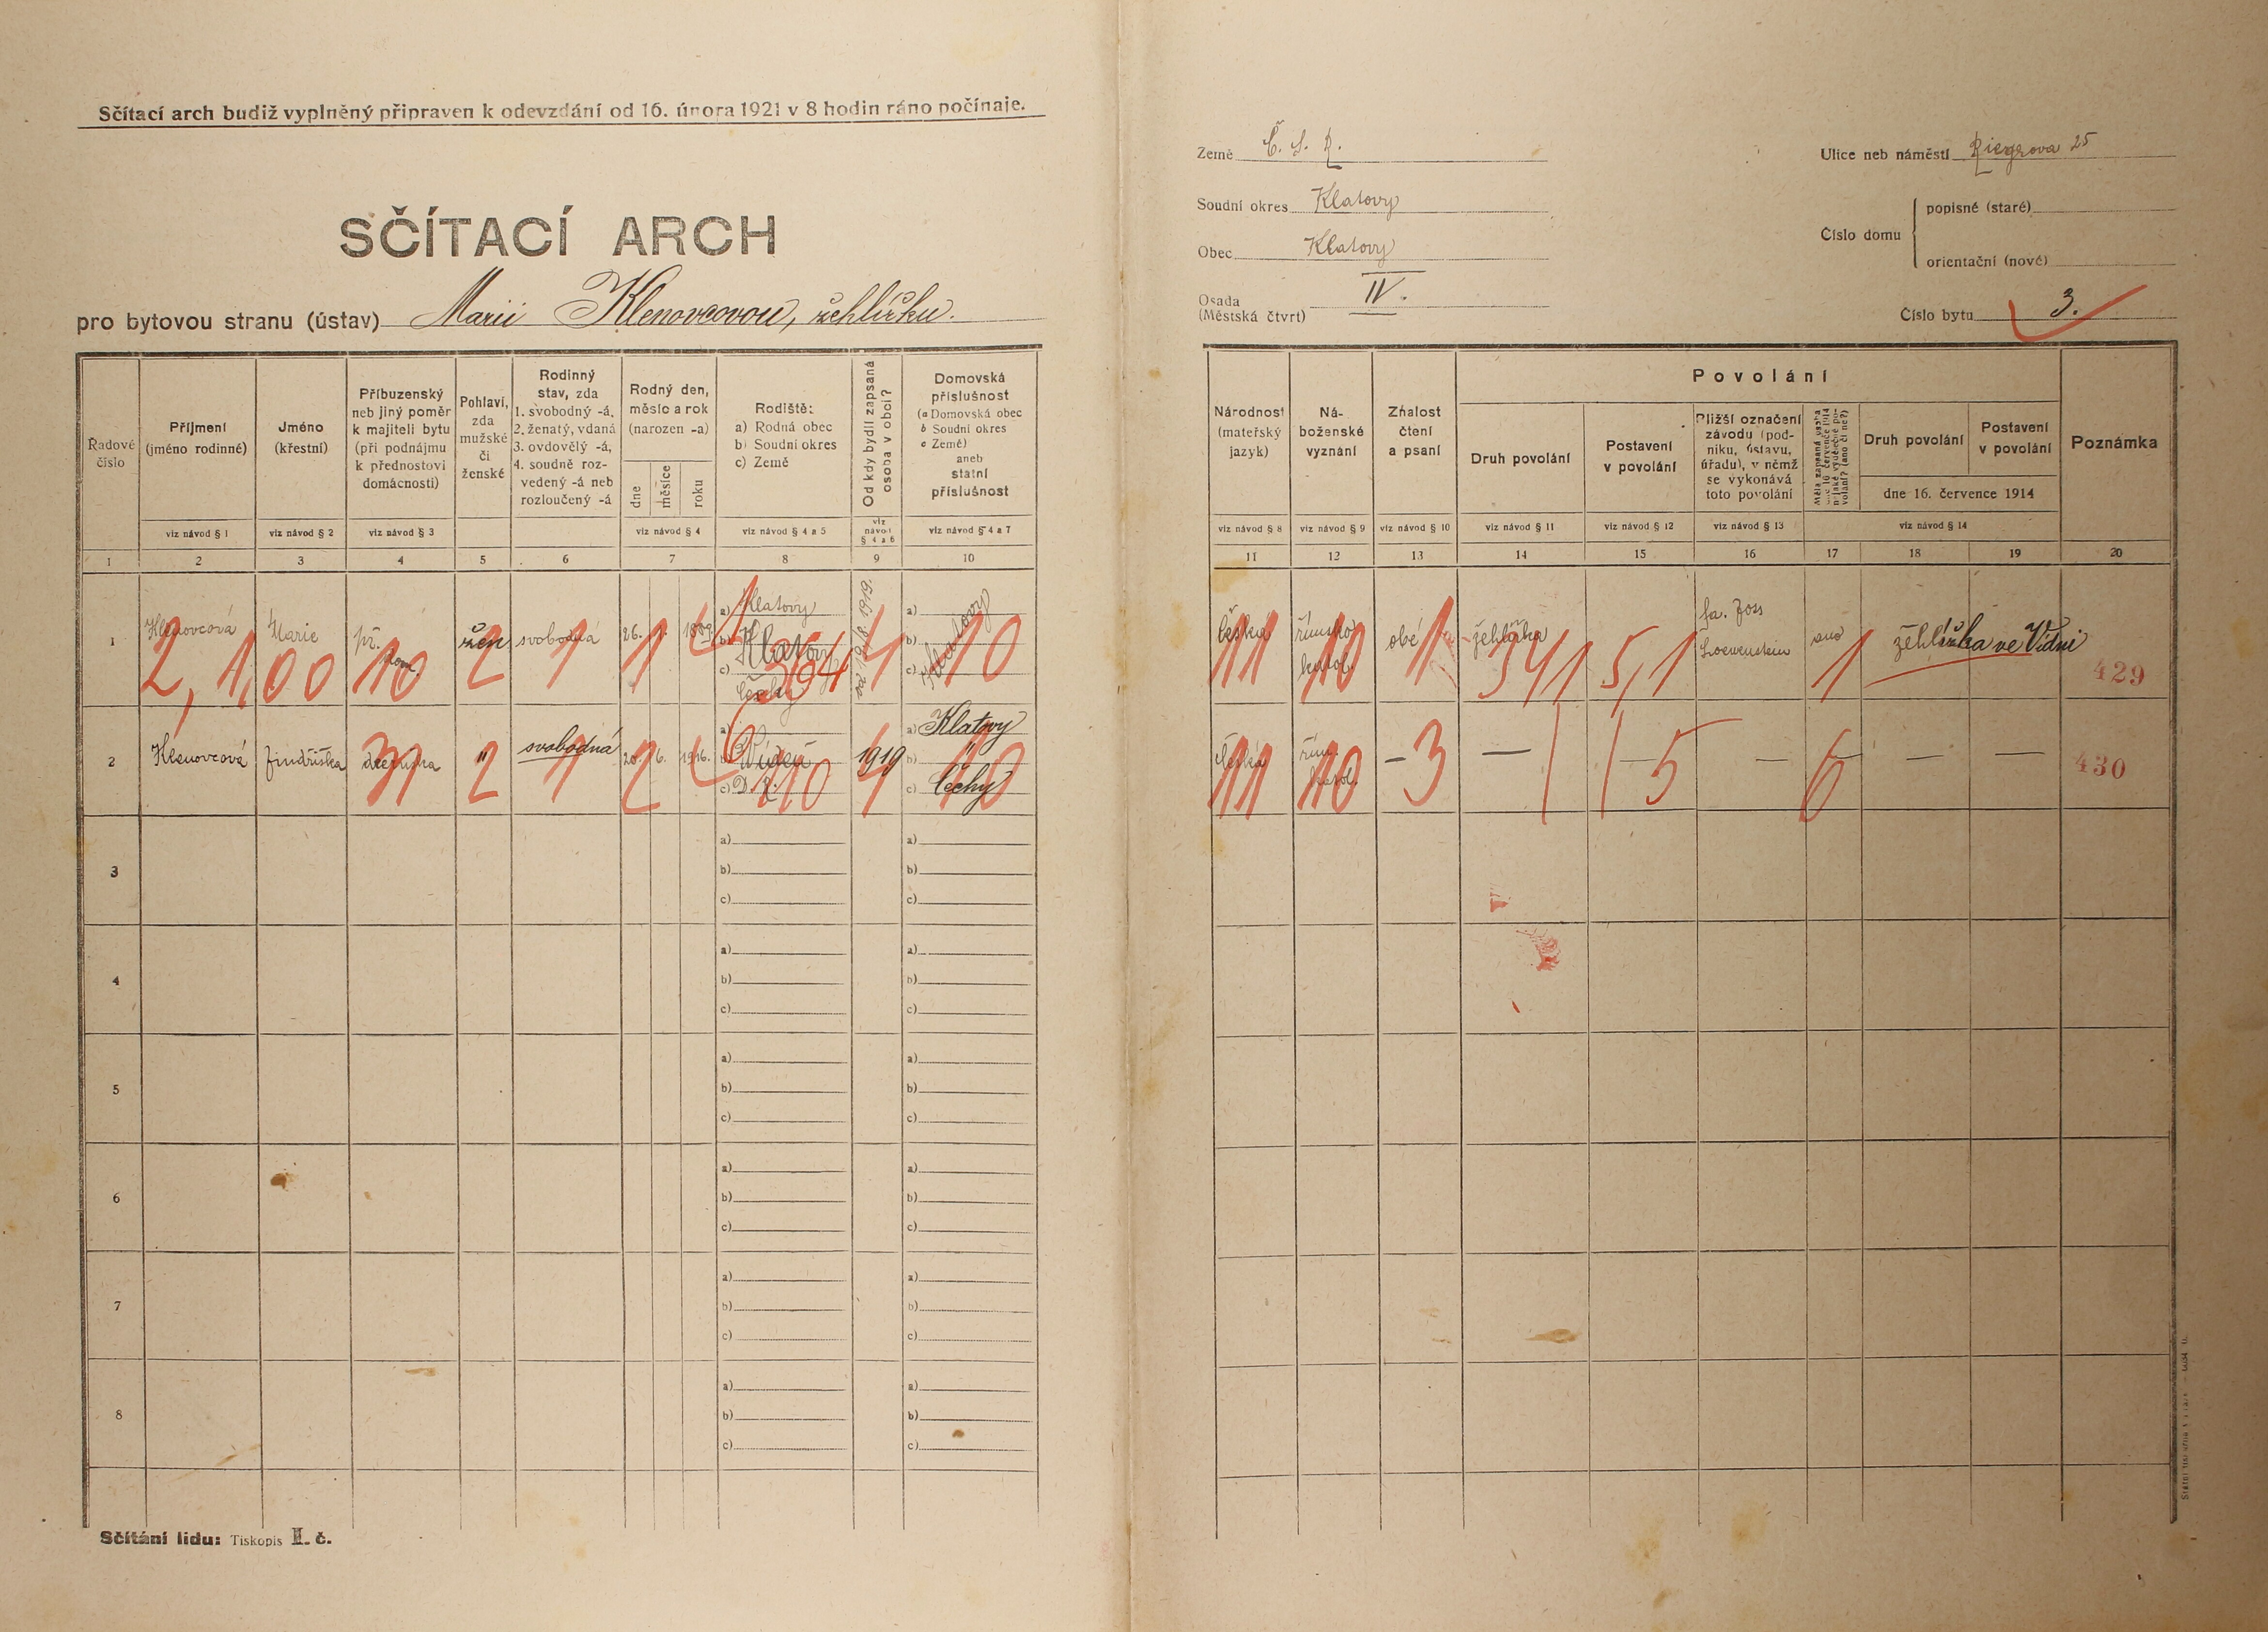 Sčítací arch budiž vyplněný připraven k odevzdání od 16. února 1921 v 8 hodin ráno počínaje.
SČÍTACÍ ARCH
pro bytovou stranu (ústav) Marii Klenovcovou, žehlířku.
Země Č. S. R.
Soudní okres Klatovy
Obec Klatovy
Osada (Městská čtvrť) IV.
Ulice neb náměstí Riegrova 25
Číslo domu
popisné (staré)
orientační (nové)
Číslo bytu 3.
Řadové číslo
Příjmení (jméno rodinné)
Jméno (křestní)
Příbuzenský neb jiný poměr k majiteli bytu (při podnájmu k přednostovi domácnosti)
Pohlaví, zda mužské či ženské
Rodinný stav, zda 1. svobodný -á, 2. ženatý, vdaná 3. ovdovělý -á, 4. soudně rozvedený -á neb rozloučený -á
Rodný den, měsíc a rok (narozen -a)
dne měsíce roku
Rodiště: a) Rodná obec b) Soudní okres c) Země
Od kdy bydlí zapsaná osoba v obci?
Domovská příslušnost (a Domovská obec b Soudní okres c Země) aneb státní příslušnost
viz návod § 1 viz návod § 2 viz návod § 3 viz návod § 4 viz návod § 4 a 5 viz návod § 4 a 6 viz návod § 4 a 7
1 2 3 4 5 6 7 8 9 10
Národnost (mateřský jazyk)
Náboženské vyznání
Znalost čtení a psaní
Povolání
Druh povolání
Postavení v povolání
Bližší označení závodu (podniku, ústavu, úřadu), v němž se vykonává toto povolání
Druh povolání
Postavení v povolání
dne 16. července 1914
Poznámka
viz návod § 8 viz návod § 9 viz návod § 10 viz návod § 11 viz návod § 12 viz návod § 13 viz návod § 14
11 12 13 14 15 16 17 18 19 20
1 Klenovcová Marie žen svobodná 26. a) Klatovy b) Klatovy c) a) b) c)
2, 1,00 10 2 1 1 4 10
česká římsko katol. obé žehlířka fa. ano žehlířka ve Vídni
11 10 1 5,1 1 429
2 Klenovcová Jindřiška dceruška " svobodná 20. 6. 1916. a) b) Vídeň c) D. R. 1919 a) Klatovy b) " c) Čechy
31 2 1 2 4 10
česká řím. katol. — — — — —
11 10 3 5 6 430
3 a) b) c) a) b) c)
4 a) b) c) a) b) c)
5 a) b) c) a) b) c)
6 a) b) c) a) b) c)
7 a) b) c) a) b) c)
8 a) b) c) a) b) c)
Sčítání lidu: Tiskopis II. č.